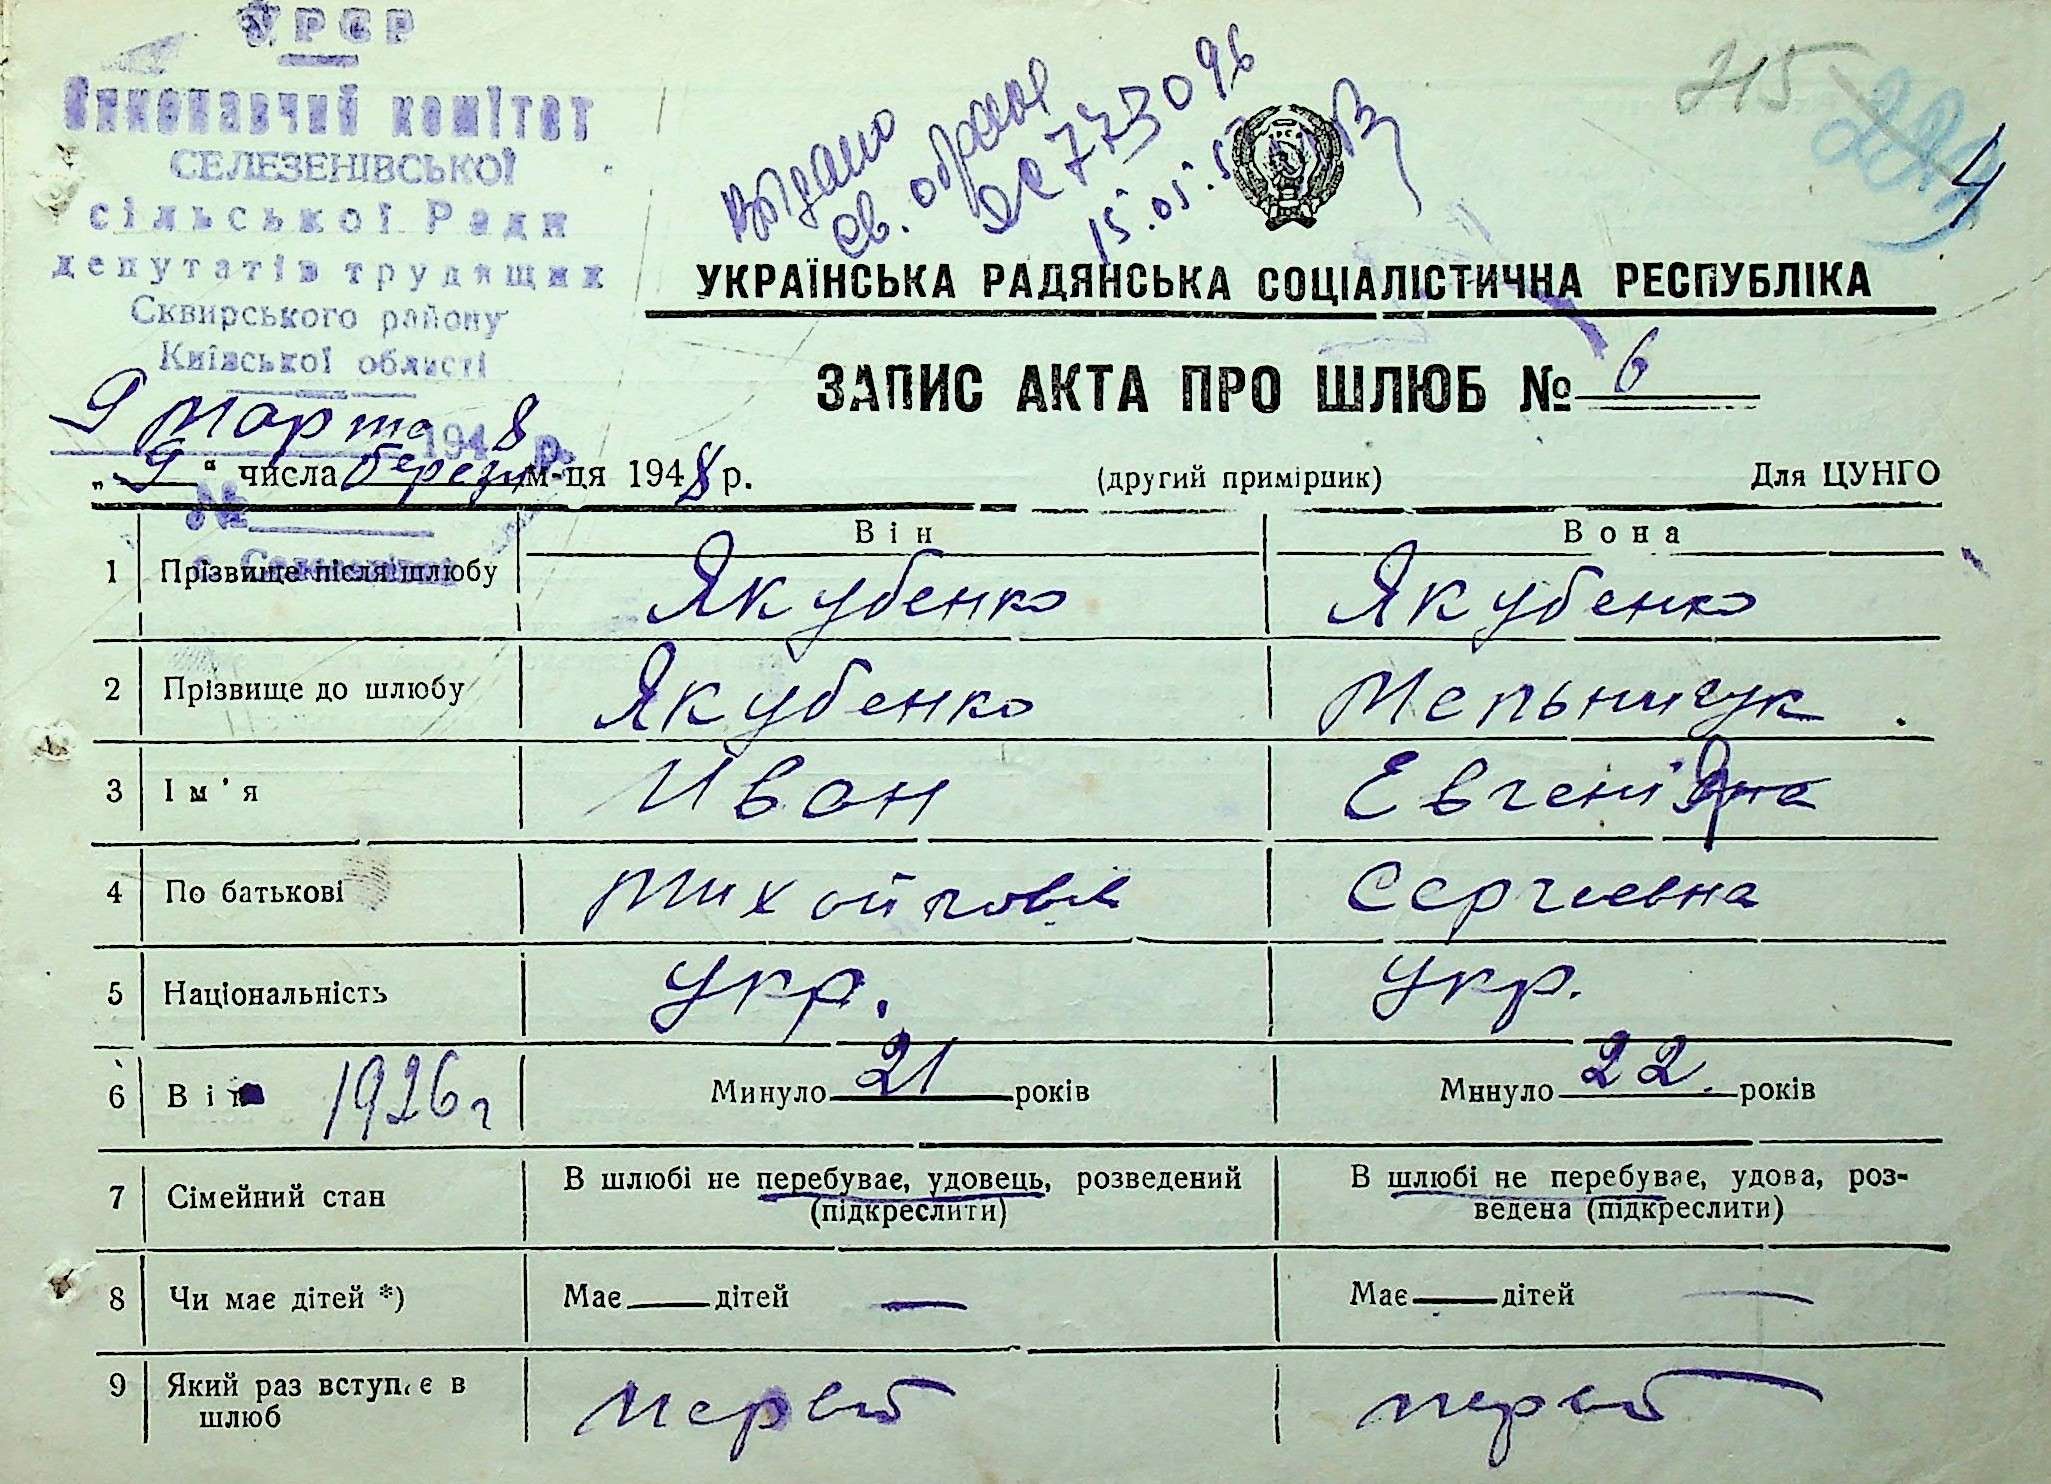 УРСР
Виконавчий комітет
СЕЛЕЗЕНІВСЬКОЇ
сільської Ради
депутатів трудящих
Сквирського району
Київської области
9 марта 1948 р.
№
видано
св. 773096
15.05.
215
4
УКРАЇНСЬКА РАДЯНСЬКА СОЦІАЛІСТИЧНА РЕСПУБЛІКА
ЗАПИС АКТА ПРО ШЛЮБ № 6
„9“ числа березн м-ця 1948 р. (другий примірник) Для ЦУНГО
Він Вона
1 Прізвище після шлюбу Якубенко Якубенко
2 Прізвище до шлюбу Якубенко Мельничук
3 Ім'я Иван Евгенія
4 По батькові Михайлов Сергеевна
5 Національність укр. укр.
6 Вік 1926 г Минуло 21 років Минуло 22 років
7 Сімейний стан В шлюбі не перебуває, удовець, розведений (підкреслити) В шлюбі не перебуває, удова, роз-
ведена (підкреслити)
8 Чи має дітей *) Має — дітей — Має — дітей —
9 Який раз вступає в
шлюб